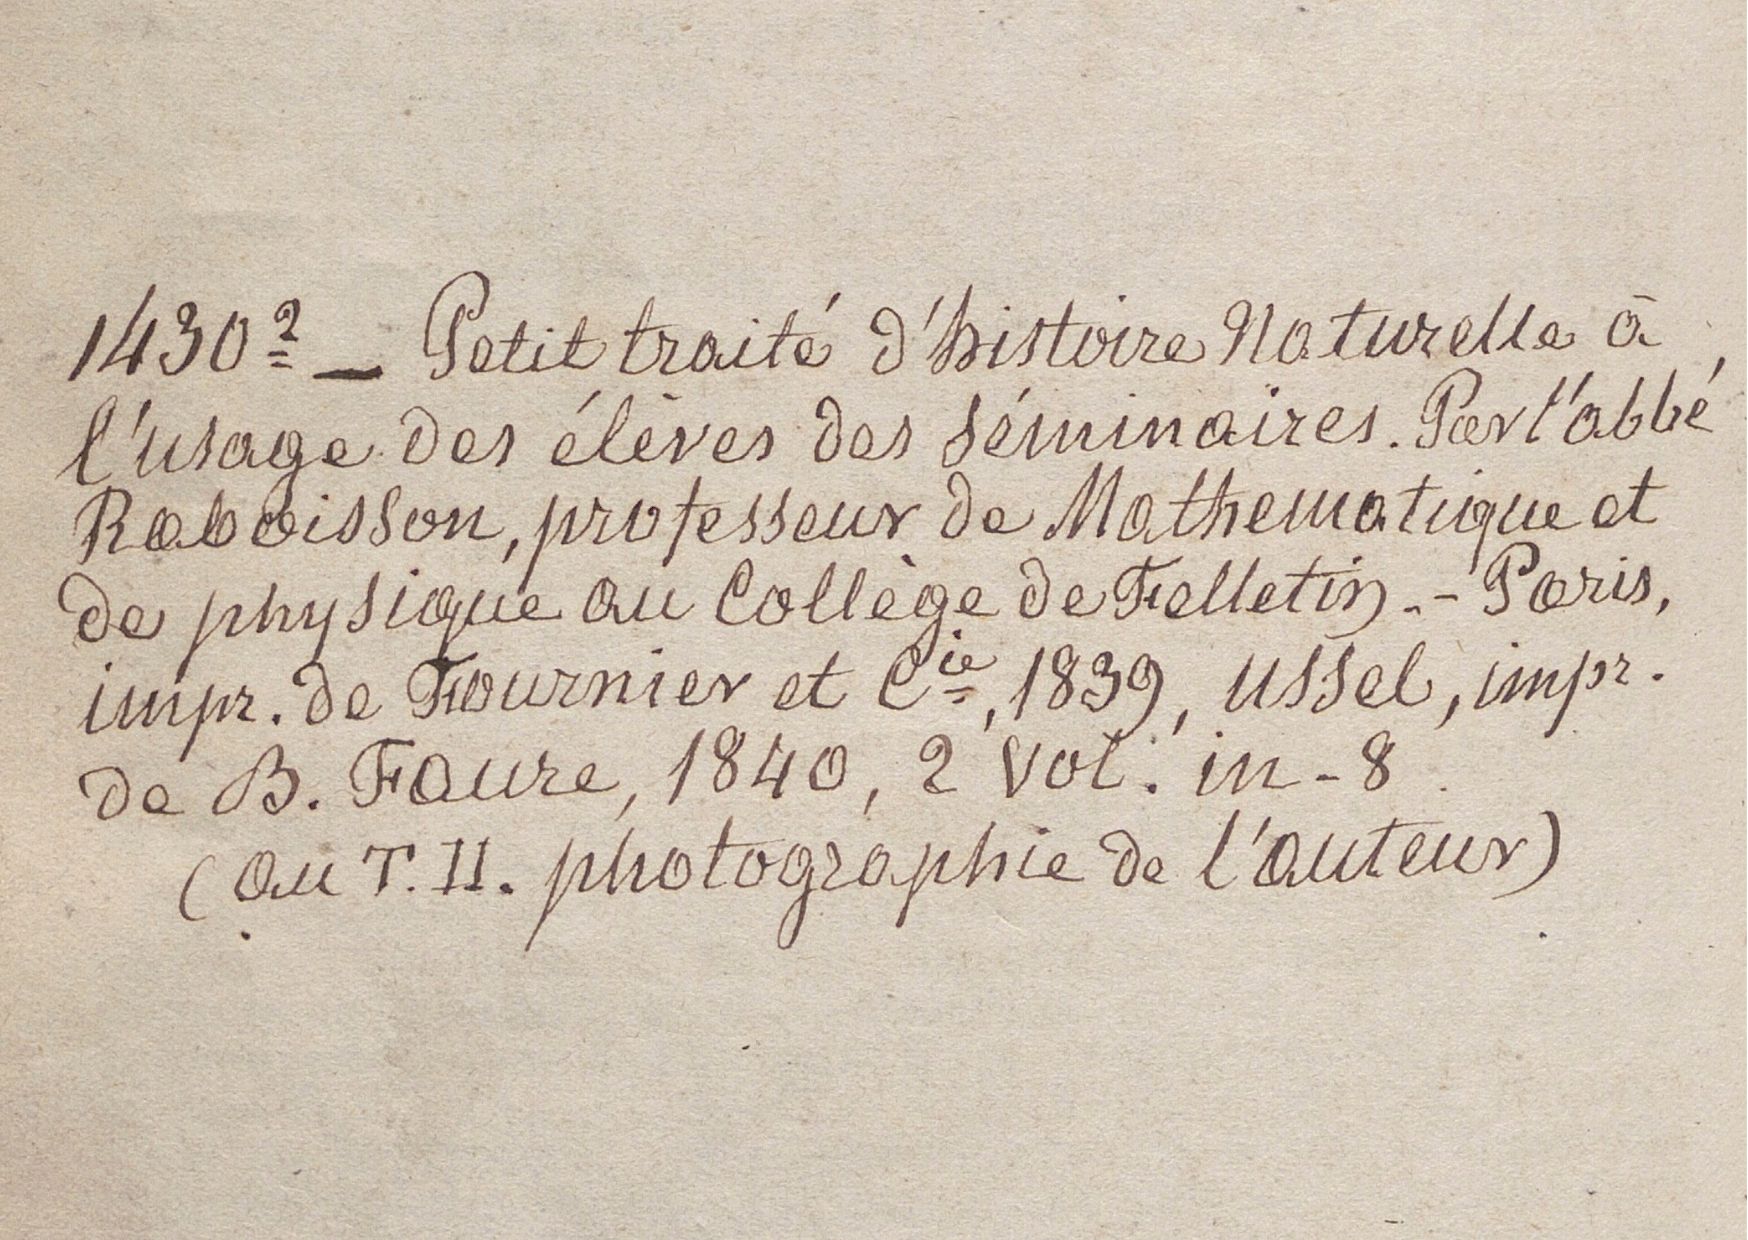 1430² — Petit traité d'histoire Naturelle à
l'usage des élèves des séminaires. Par l'abbé
Raboisson, professeur de Mathematique et
de physique au Collège de Felletin. - Paris,
impr. de Fournier et Cie, 1839, Ussel, impr.
de B. Faure, 1840, 2 vol. in-8
(au T. II. photographie de l'auteur)